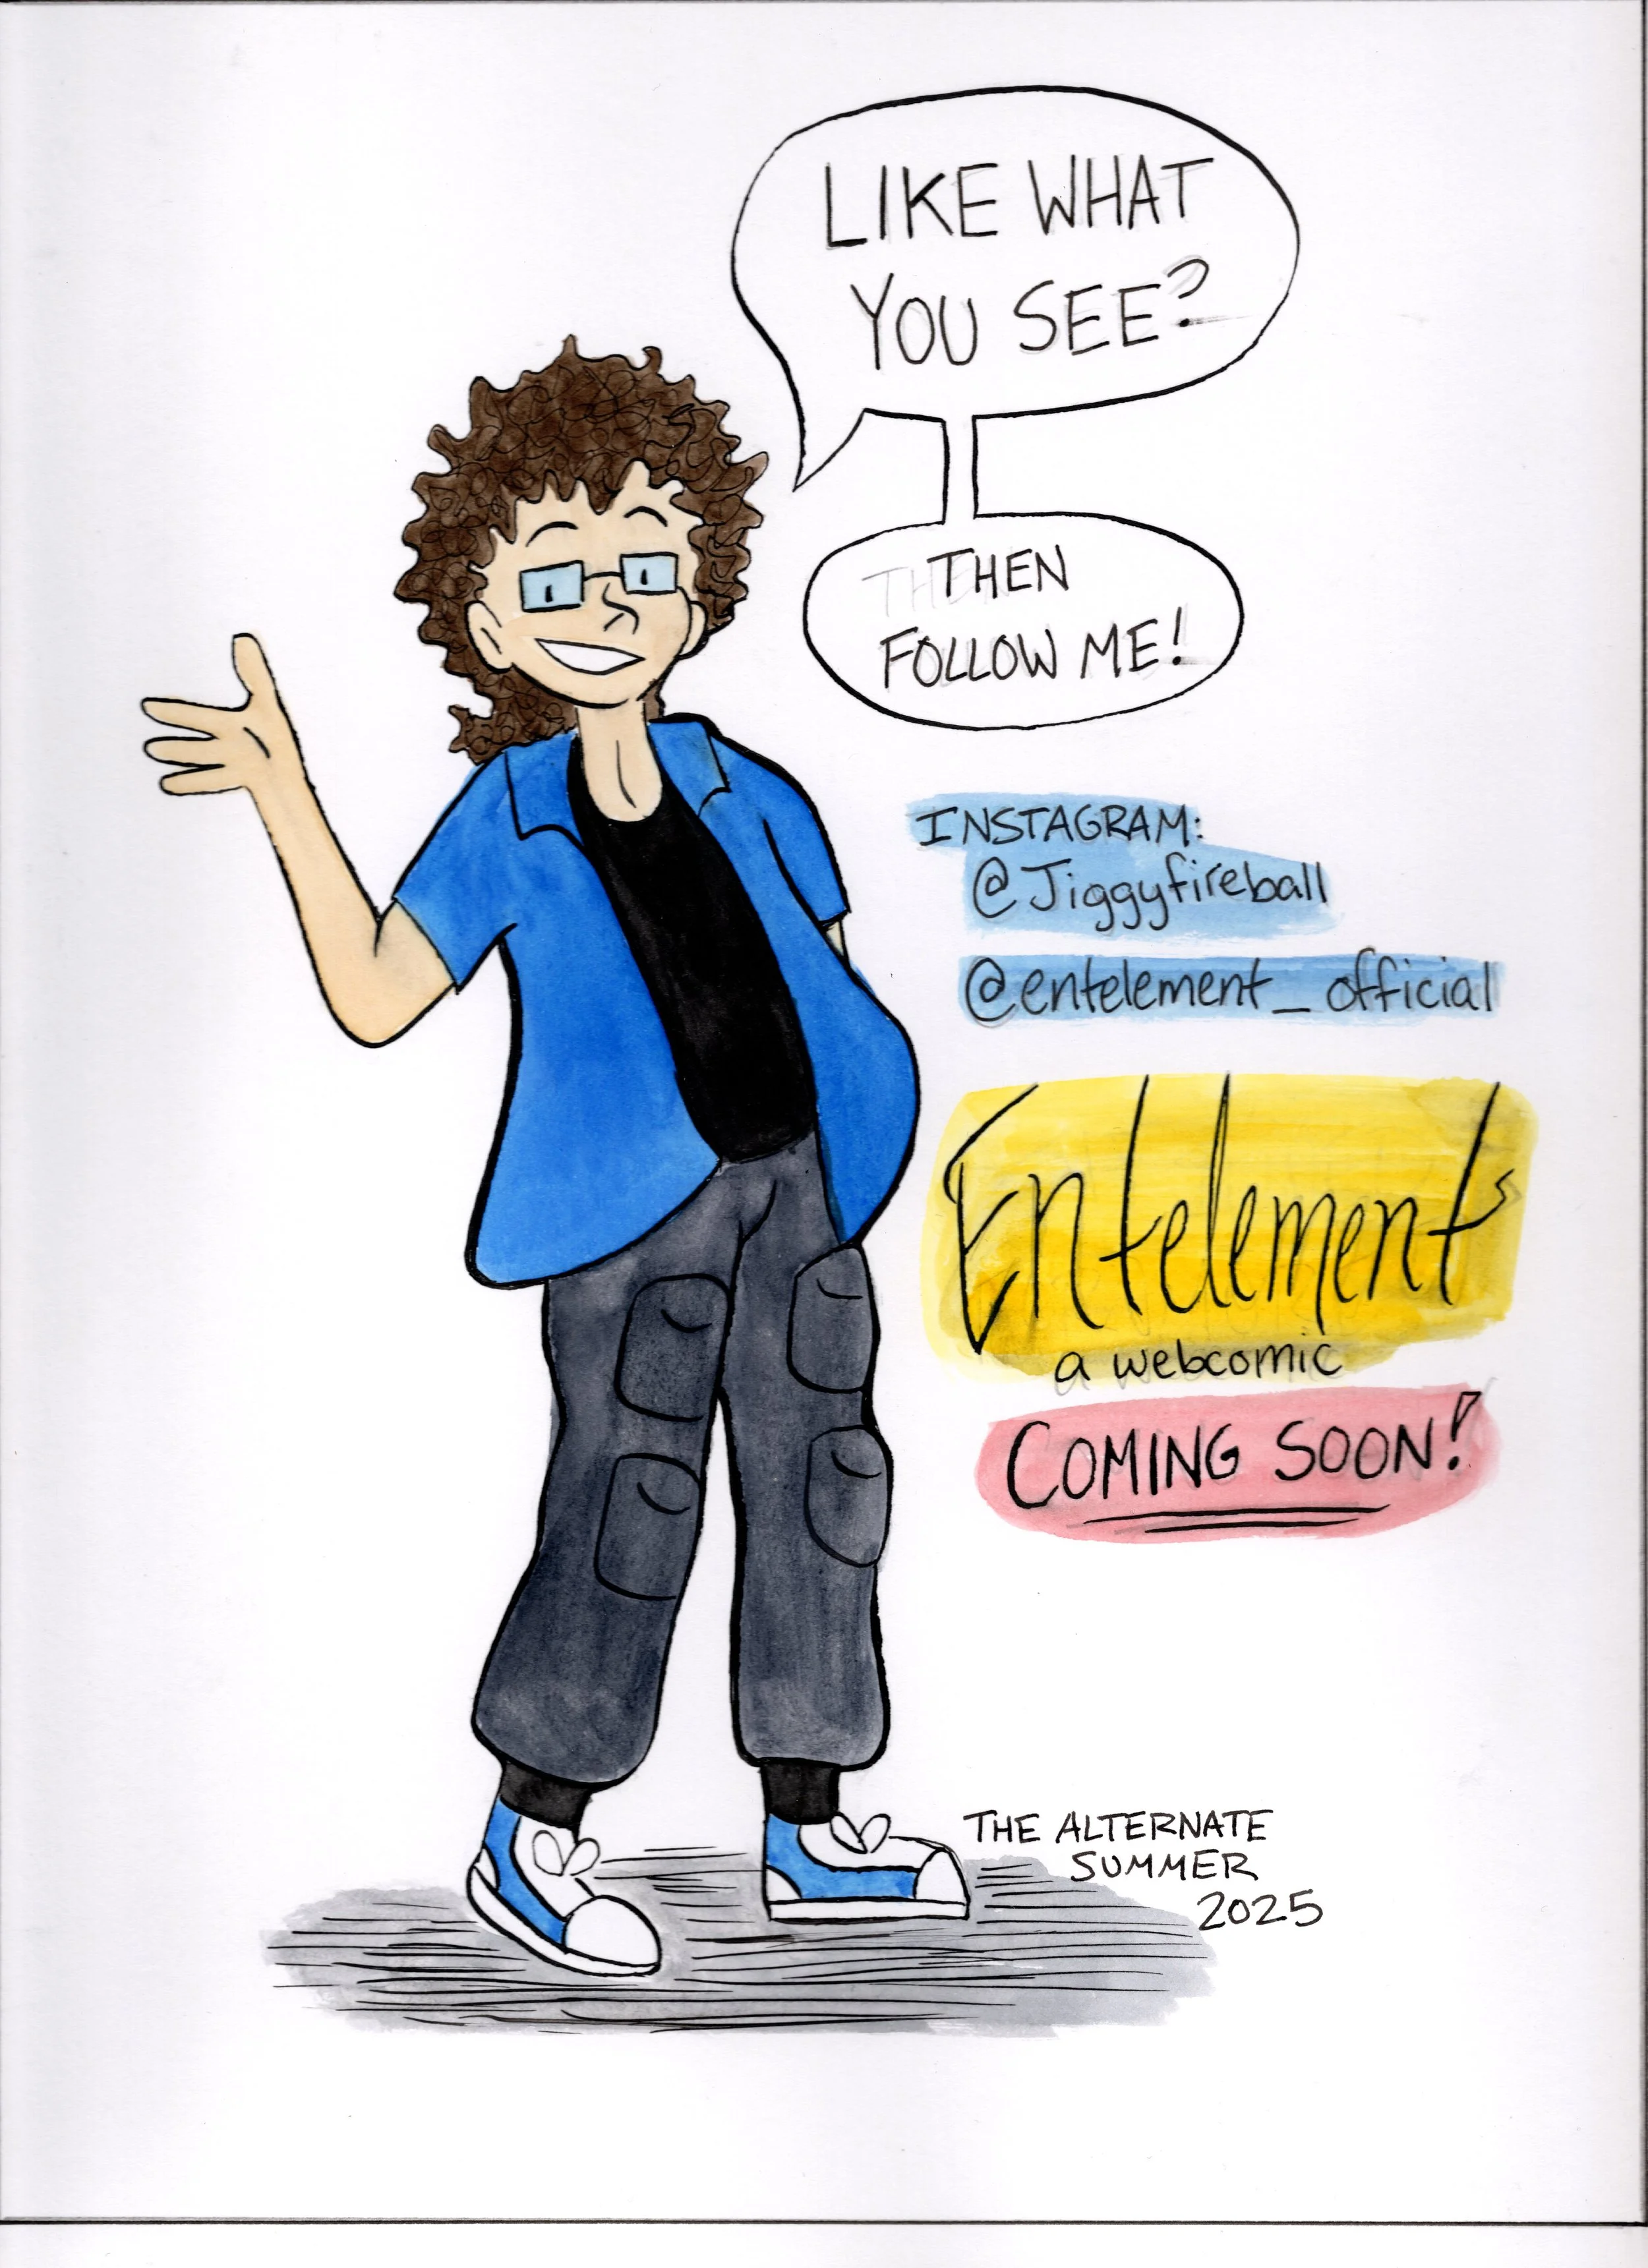 LIKE WHAT
YOU SEE?
THEN
FOLLOW ME!
INSTAGRAM:
@Jiggyfireball
@entelement_official
Entelement
a webcomic
COMING SOON!
THE ALTERNATE
SUMMER
2025